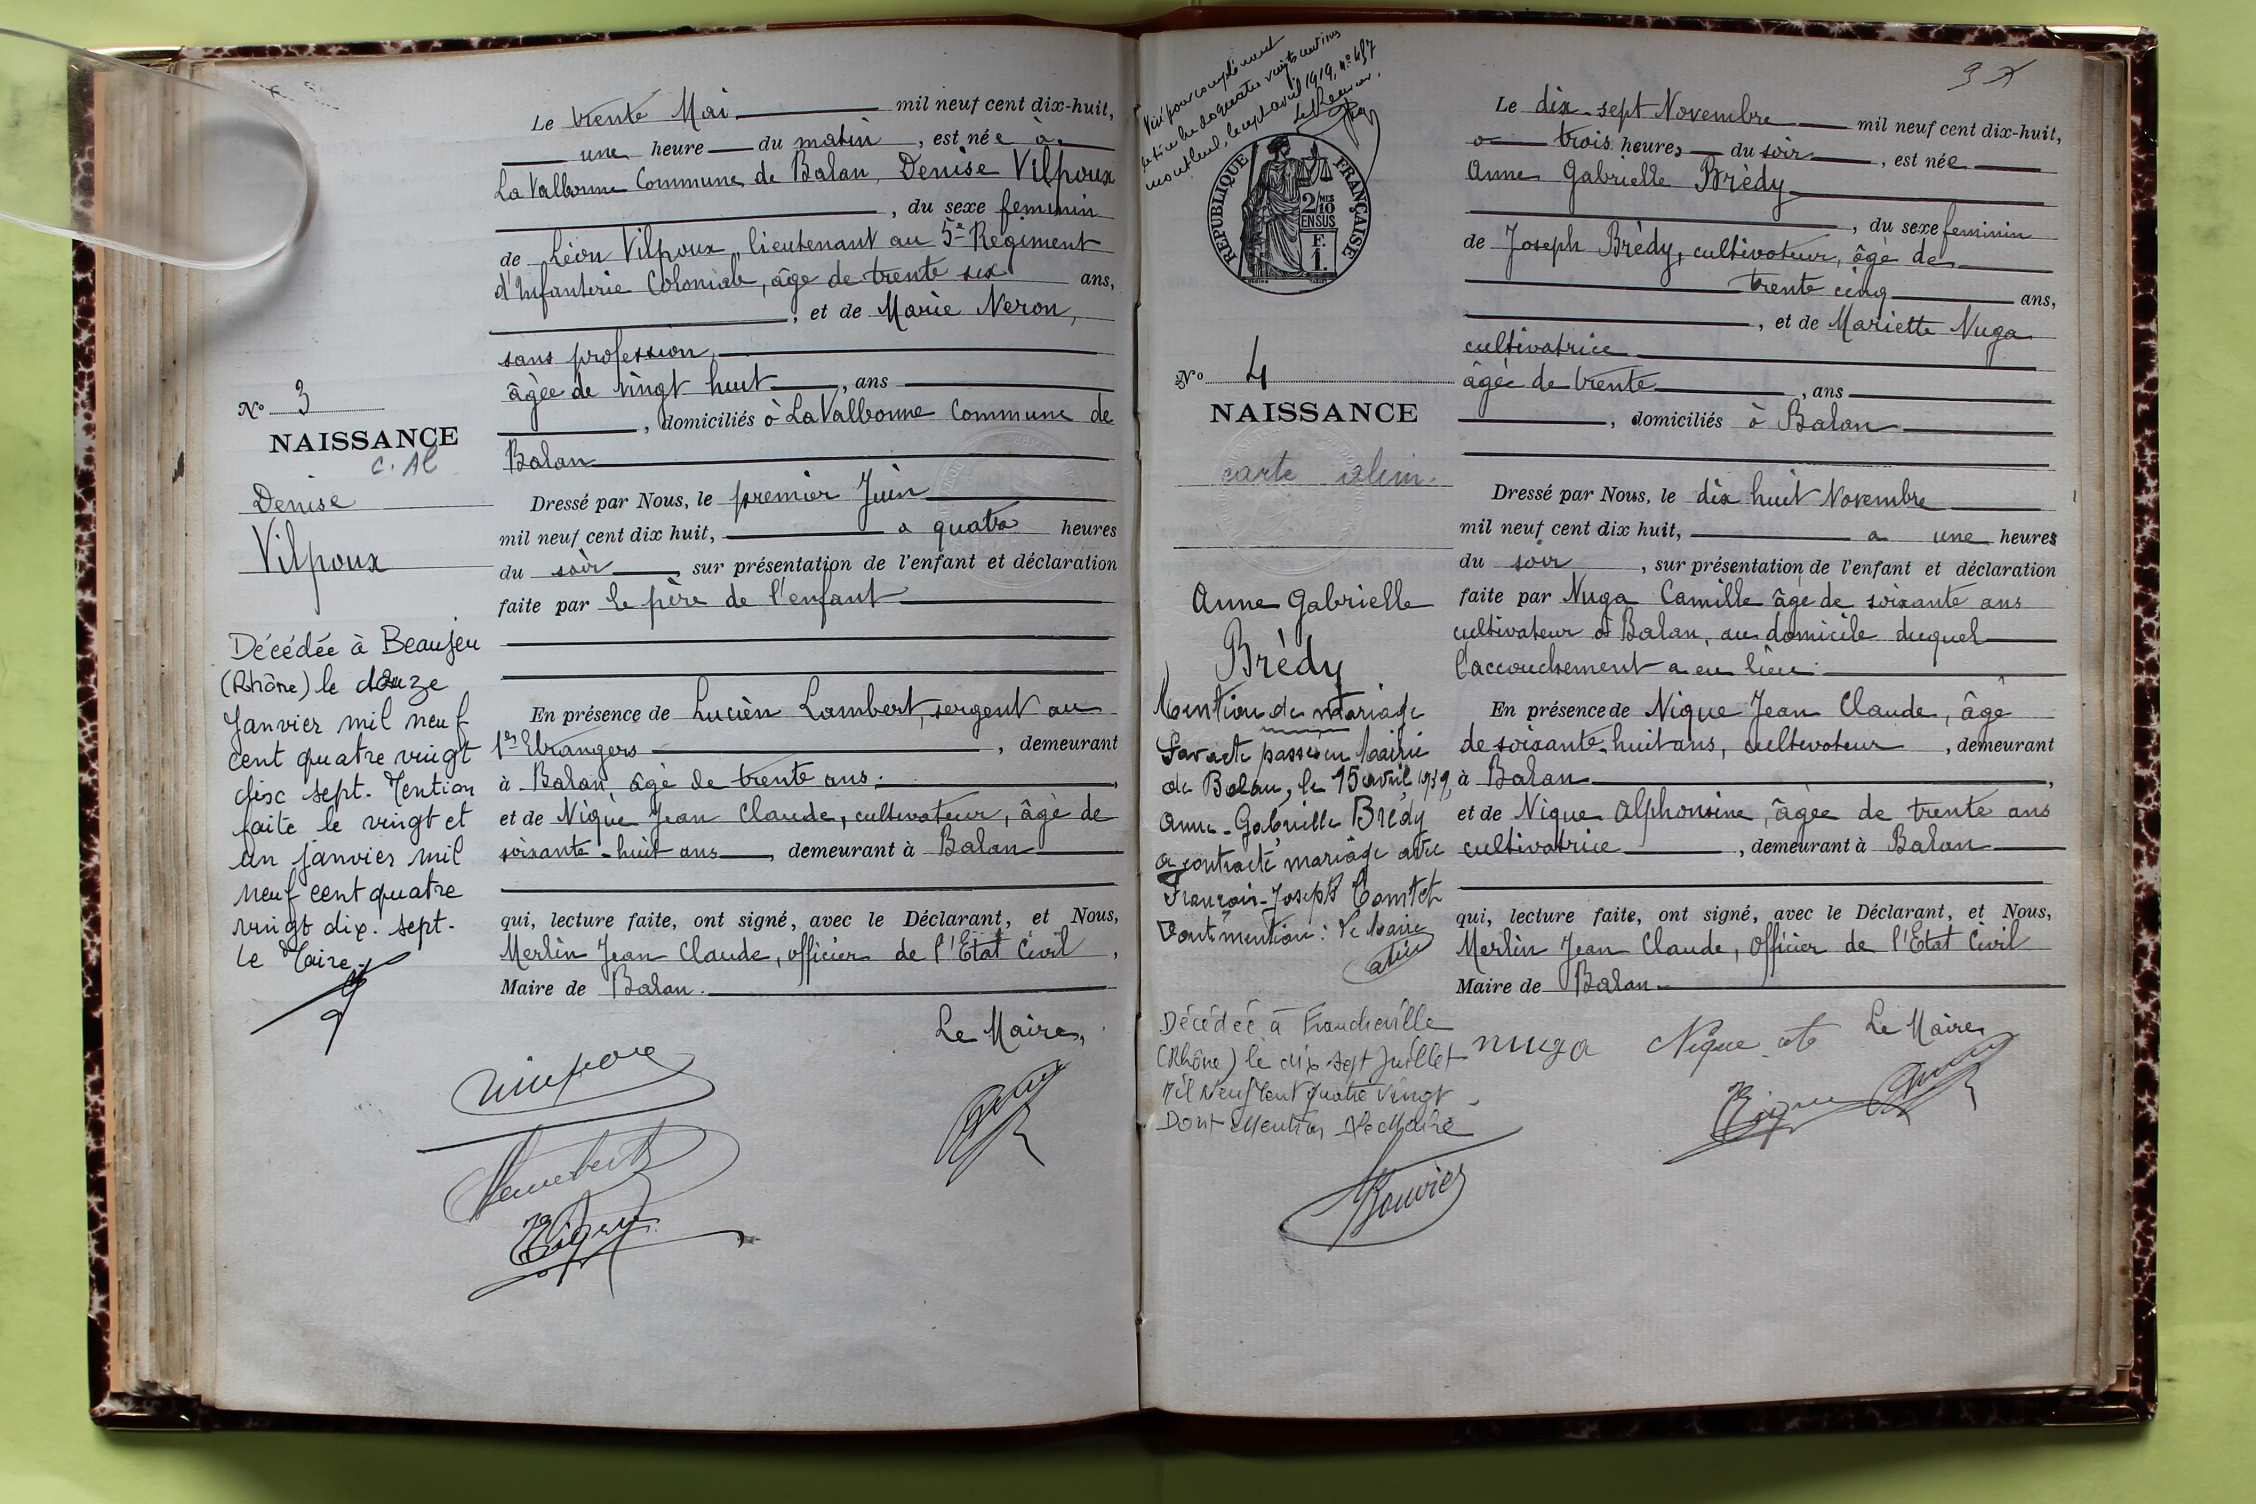 Le trente Mai mil neuf cent dix-huit,
une heure du matin, est née à
La Valbonne Commune de Balan, Denise Vilpoux
, du sexe feminin
de Léon Vilpoux, lieutenant au 5e Regiment
d'Infanterie Coloniale, âgé de trente six ans,
, et de Marie Neron,
sans profession,
âgée de vingt huit, ans
, domiciliés à La Valbonne Commune de
Balan
Dressé par Nous, le premier Juin
mil neuf cent dix huit, a quatre heures
du soir, sur présentation de l'enfant et déclaration
faite par le père de l'enfant
En présence de Lucien Lambert, sergent au
1er Etrangers, demeurant
à Balan âgé de trente ans.
et de Nique Jean Claude, cultivateur, âgé de
soixante-huit ans, demeurant à Balan
qui, lecture faite, ont signé, avec le Déclarant, et Nous,
Merlin Jean Claude, officier de l'Etat Civil,
Maire de Balan.
Le Maire,
No 3
NAISSANCE
C. Al
Denise
Vilpoux
Décédée à Beaujeu
(Rhône) le douze
Janvier mil neuf
cent quatre vingt
disc sept. Mention
faite le vingt et
un janvier mil
neuf cent quatre
vingt dix. sept.
Le Maire.
Vilpoux
Lambert
Nique
3
Visé pour complément
de quatre vingts centimes
Montluel, le sept avril 1919, no 457
RÉPUBLIQUE FRANÇAISE
2/10MES
EN SUS
F.
1.
No 4
NAISSANCE
carte alim.
Anne Gabrielle
Brèdy
Mention de mariage
Par acte passé en Mairie
de Balan, le 15 avril 1939,
Anne-Gabrielle Brèdy
a contracté mariage avec
François-Joseph
Dont mention: Le Maire
Décédée à Francheville
(Rhône) le dix sept Juillet
Mil Neuf Cent Quatre Vingt
Dont Mention Le Maire
Bouvier
Le dix-sept Novembre mil neuf cent dix-huit,
a trois heures du soir, est née
Anne Gabrielle Brèdy
, du sexe feminin
de Joseph Brèdy, cultivateur, âgé de
trente cinq ans,
, et de Mariette Nuga
cultivatrice
âgée de trente, ans
, domiciliés à Balan
Dressé par Nous, le dix huit Novembre
mil neuf cent dix huit, a une heures
du soir, sur présentation de l'enfant et déclaration
faite par Nuga Camille âgé de soixante ans
cultivateur à Balan, au domicile duquel
l'accouchement a eu lieu.
En présence de Nique Jean Claude, âgé
de soixante-huit ans, cultivateur, demeurant
à Balan,
et de Nique Alphonsine, âgée de trente ans
cultivatrice, demeurant à Balan
qui, lecture faite, ont signé, avec le Déclarant, et Nous,
Merlin Jean Claude, Officier de l'Etat Civil
Maire de Balan
Le Maire
nuga
Nique
Nique